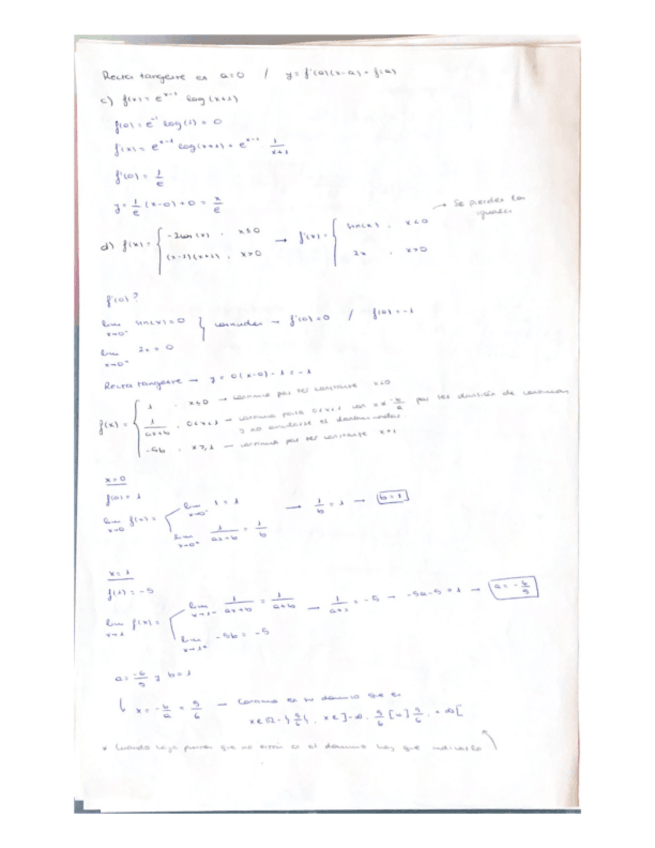 Recta tangente en a=0 / y = f'(a)(x-a) + f(a)
c) f(x) = e^{x-1} log(x+1)
f(0) = e^{-1} log(1) = 0
f'(x) = e^{x-1} log(x+1) + e^{x-1} 1/(x+1)
f'(0) = 1/e
y = 1/e (x-0) + 0 = x/e
→ Se pierden los iguales
d) f(x) = { , x≤0 → f'(x) = { sin(x) , x<0
(x-1)(x+1) , x>0 2x , x>0
f'(0)?
lim x→0⁻ sin(x) = 0 } coinciden → f'(0) = 0 / f(0) = -1
lim x→0⁺ 2x = 0
Recta tangente → y = 0(x-0) - 1 = -1
f(x) = { 1 , x≤0 → continua por ser constante x<0
1/(ax+b) , 0<x<1 → continua para 0<x<1 con x ≠ -b/a por ser división de continuas
y no anularse el denominador
-5b , x≥1 → continua por ser constante x>1
x=0
f(0) = 1
lim x→0 f(x) = lim x→0⁻ 1 = 1 → 1/b = 1 → b=1
lim x→0⁺ 1/(ax+b) = 1/b
x=1
f(1) = -5
lim x→1 f(x) = lim x→1⁻ 1/(ax+b) = 1/(a+b) → 1/(a+1) = -5 → -5a-5 = 1 → a = -6/5
lim x→1⁺ -5b = -5
a = -6/5 y b=1
x = -b/a = 5/6 → Continua en su dominio que es
x∈ℝ-{5/6}, x∈]-∞, 5/6[ ∪ ]5/6, +∞[
* Cuando haya puntos que no estén en el dominio hay que indicarlo